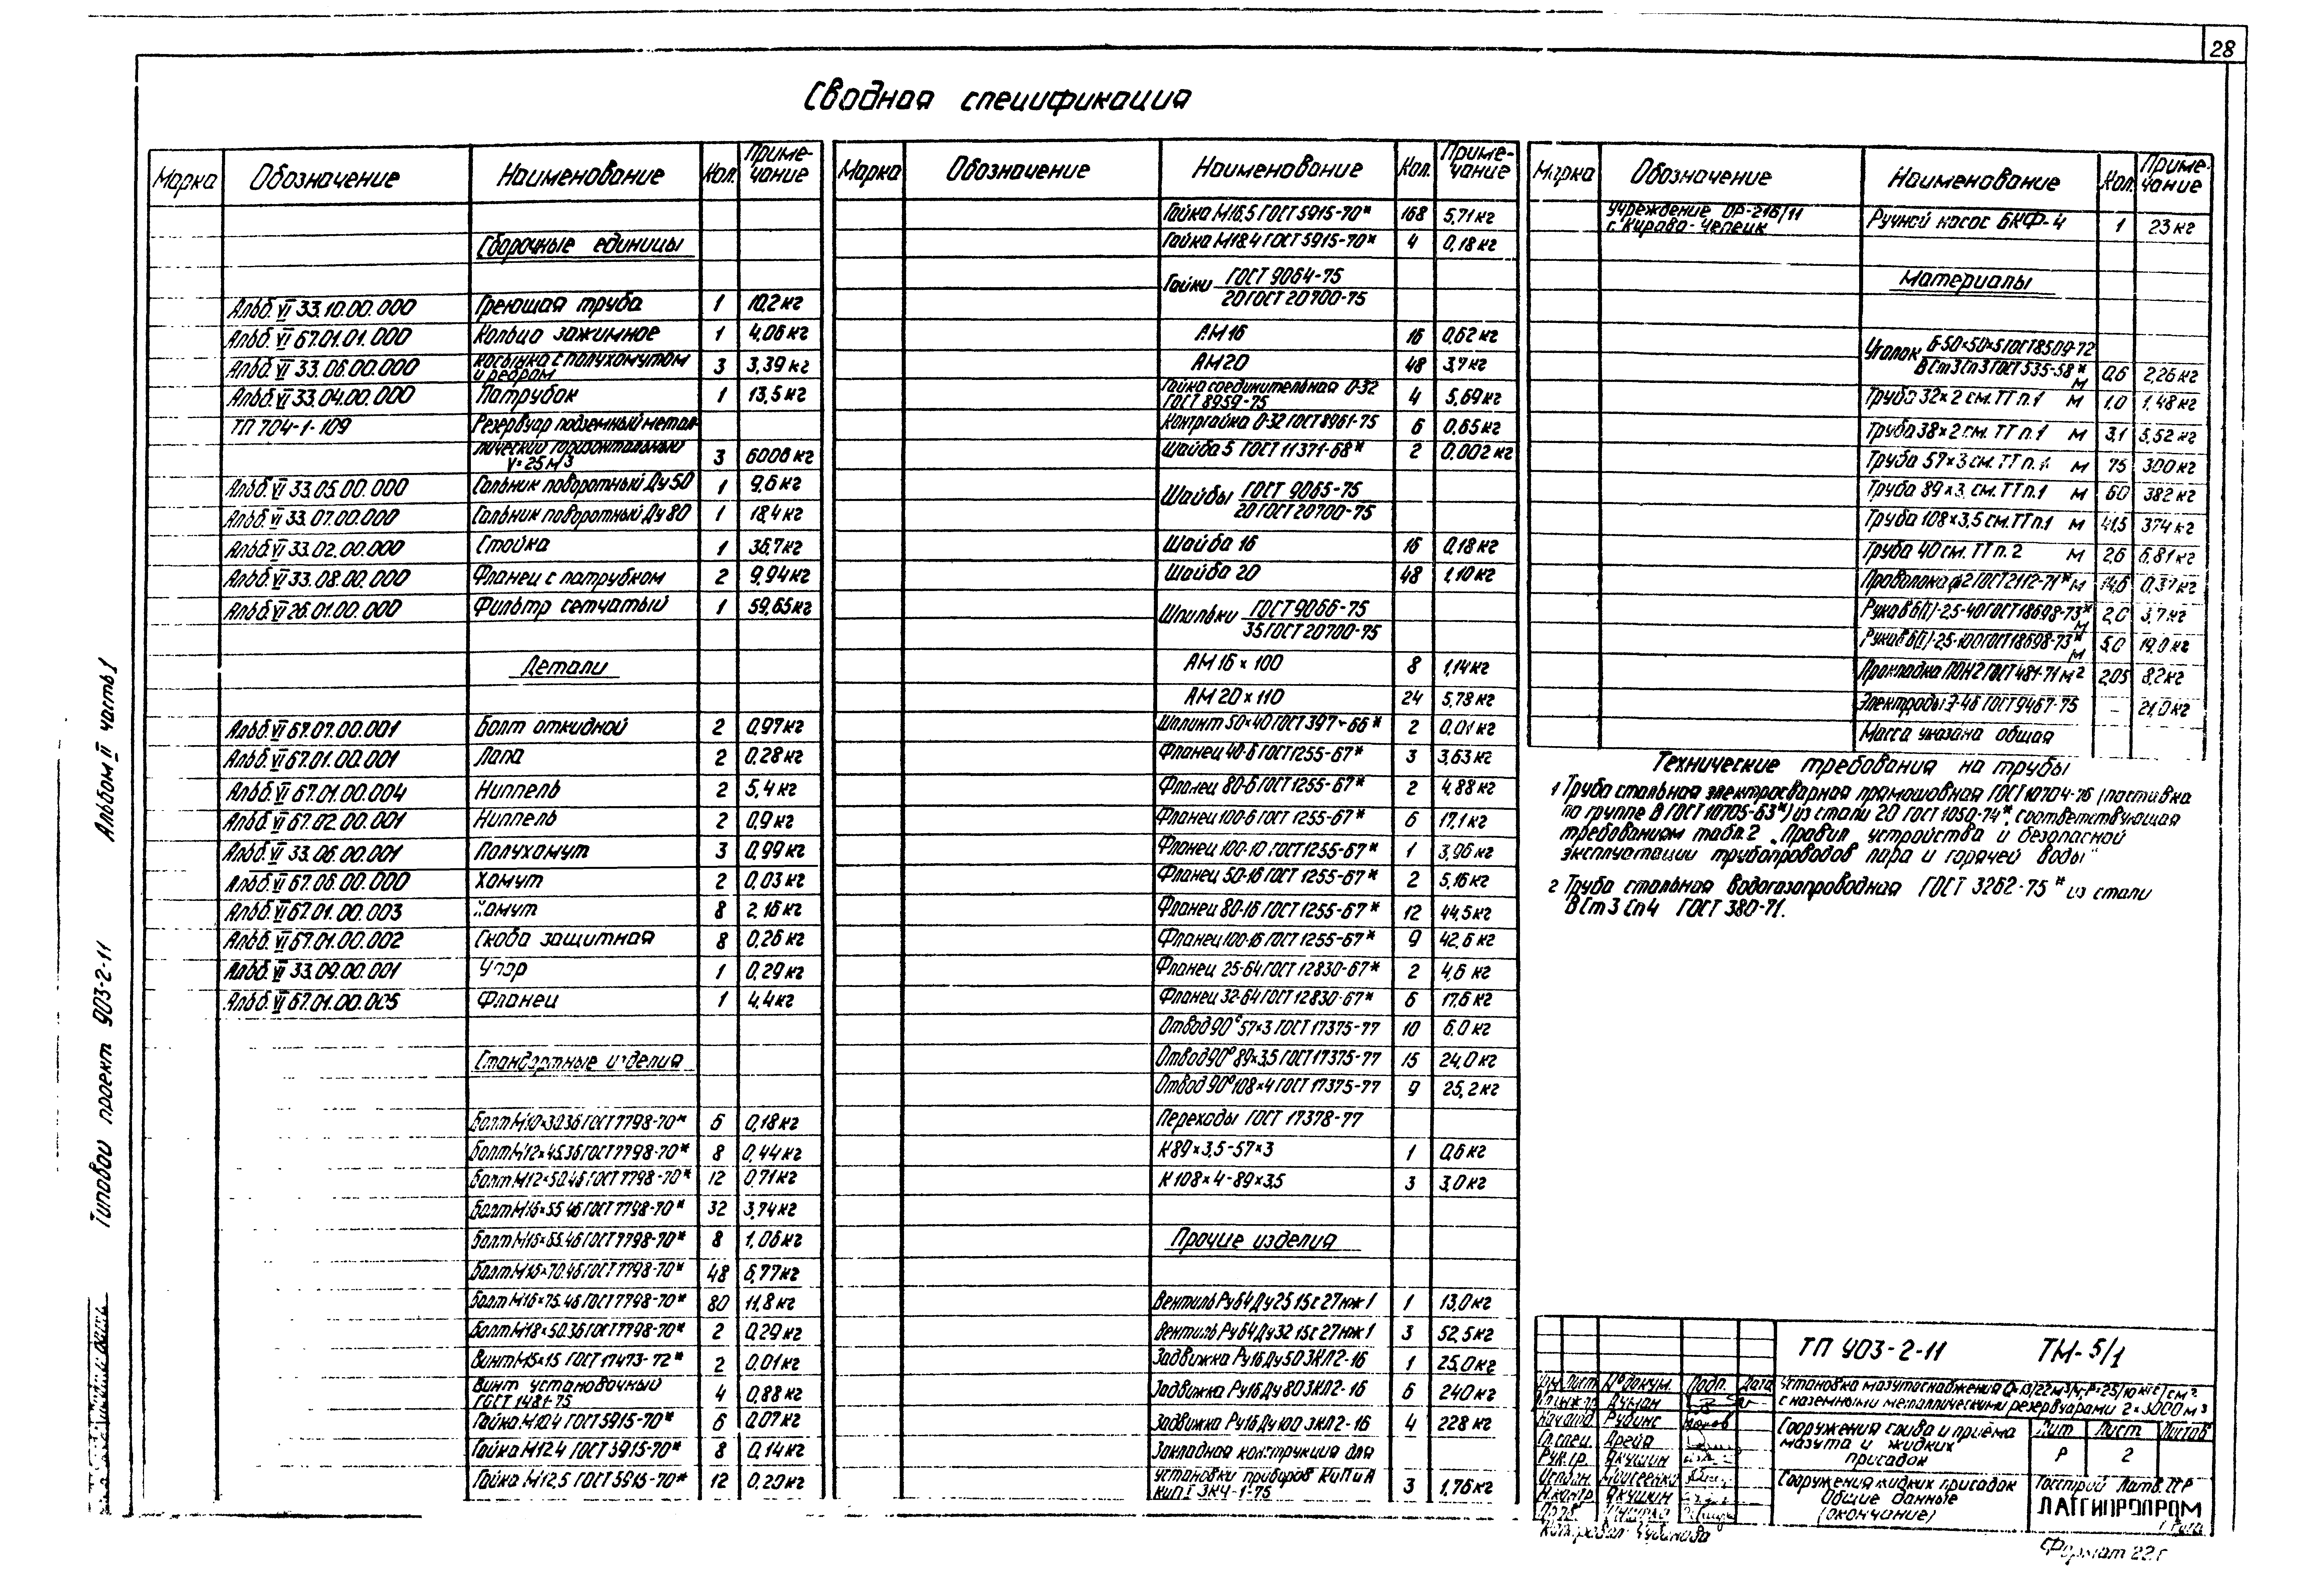 28
Сводная спецификация
Марка Обозначение Наименование Кол. Примечание
Сборочные единицы
Альб. VI 33.10.00.000 Греющая труба 1 10,2 кг
Альб. VI 67.01.01.000 Кольцо зажимное 1 4,06 кг
Альб. VI 33.06.00.000 Косынка с полухомутом и ребром 3 3,39 кг
Альб. VI 33.04.00.000 Патрубок 1 13,5 кг
ТП 704-1-109 Резервуар подземный метал-
лический горизонтальный V=25м3 3 6006 кг
Альб. VI 33.05.00.000 Сальник поворотный Ду50 1 9,6 кг
Альб. VI 33.07.00.000 Сальник поворотный Ду80 1 18,4 кг
Альб. VI 33.02.00.000 Стойка 1 36,7 кг
Альб. VI 33.08.00.000 Фланец с патрубком 2 9,94 кг
Альб. VI 26.01.00.000 Фильтр сетчатый 1 59,65 кг
Детали
Альб. VI 67.07.00.001 Болт откидной 2 0,97 кг
Альб. VI 67.01.00.001 Лапа 2 0,28 кг
Альб. VI 67.01.00.004 Ниппель 2 5,4 кг
Альб. VI 67.02.00.001 Ниппель 2 0,9 кг
Альб. VI 33.06.00.001 Полухомут 3 0,99 кг
Альб. VI 67.06.00.000 Хомут 2 0,03 кг
Альб. VI 67.01.00.003 Хомут 8 2,16 кг
Альб. VI 67.01.00.002 Скоба защитная 8 0,26 кг
Альб. VI 33.09.00.001 Упор 1 0,29 кг
Альб. VI 67.01.00.005 Фланец 1 4,4 кг
Стандартные изделия
Болт М10×30.36 ГОСТ 7798-70* 6 0,18 кг
Болт М12×45.36 ГОСТ 7798-70* 8 0,44 кг
Болт М12×50.46 ГОСТ 7798-70* 12 0,71 кг
Болт М16×55.46 ГОСТ 7798-70* 32 3,74 кг
Болт М16×65.46 ГОСТ 7798-70* 8 1,06 кг
Болт М16×70.46 ГОСТ 7798-70* 48 6,77 кг
Болт М16×75.46 ГОСТ 7798-70* 80 11,8 кг
Болт М18×50.36 ГОСТ 7798-70* 2 0,29 кг
Винт М5×15 ГОСТ 17473-72* 2 0,01 кг
Винт установочный ГОСТ 1481-75 4 0,88 кг
Гайка М10.4 ГОСТ 5915-70* 6 0,07 кг
Гайка М12.4 ГОСТ 5915-70* 8 0,14 кг
Гайка М12.5 ГОСТ 5915-70* 12 0,20 кг
Марка Обозначение Наименование Кол. Примечание
Гайка М16.5 ГОСТ 5915-70* 168 5,71 кг
Гайка М18.4 ГОСТ 5915-70* 4 0,18 кг
Гайки ГОСТ 9064-75
20 ГОСТ 20700-75
АМ16 16 0,62 кг
АМ20 48 3,7 кг
Гайка соединительная 0-32 ГОСТ 8959-75 4 5,69 кг
Контргайка 0-32 ГОСТ 8961-75 6 0,65 кг
Шайба 5 ГОСТ 11371-68* 2 0,002 кг
Шайбы ГОСТ 9065-75
20 ГОСТ 20700-75
Шайба 16 16 0,18 кг
Шайба 20 48 1,10 кг
Шпильки ГОСТ 9066-75
35 ГОСТ 20700-75
АМ 16 × 100 8 1,14 кг
АМ 20 × 110 24 5,78 кг
Шплинт 50×40 ГОСТ 397-66* 2 0,01 кг
Фланец 40-6 ГОСТ 1255-67* 3 3,63 кг
Фланец 80-6 ГОСТ 1255-67* 2 4,88 кг
Фланец 100-6 ГОСТ 1255-67* 6 17,1 кг
Фланец 100-10 ГОСТ 1255-67* 1 3,96 кг
Фланец 50-16 ГОСТ 1255-67* 2 5,16 кг
Фланец 80-16 ГОСТ 1255-67* 12 44,5 кг
Фланец 100-16 ГОСТ 1255-67* 9 42,6 кг
Фланец 25-64 ГОСТ 12830-67* 2 4,6 кг
Фланец 32-64 ГОСТ 12830-67* 6 17,6 кг
Отвод 90° 57×3 ГОСТ 17375-77 10 6,0 кг
Отвод 90° 89×3,5 ГОСТ 17375-77 15 24,0 кг
Отвод 90° 108×4 ГОСТ 17375-77 9 25,2 кг
Переходы ГОСТ 17378-77
К 89×3,5-57×3 1 0,6 кг
К 108×4-89×3,5 3 3,0 кг
Прочие изделия
Вентиль Ру64 Ду25 15с27нж1 1 13,0 кг
Вентиль Ру64 Ду32 15с27нж1 3 52,5 кг
Задвижка Ру16 Ду50 ЗКЛ2-16 1 25,0 кг
Задвижка Ру16 Ду80 ЗКЛ2-16 6 240 кг
Задвижка Ру16 Ду100 ЗКЛ2-16 4 228 кг
Закладная конструкция для
установки приборов КиПиА
3 1,76 кг
Марка Обозначение Наименование Кол. Примечание
Учреждение ОР-216/11 г. Кирово-Чепецк Ручной насос БКФ-4 1 23 кг
Материалы
Уголок Б-50×50×5 ГОСТ 8509-72
ВСт3Сп3 ГОСТ 535-58* м 0,6 2,26 кг
Труба 32×2 см. ТТ п.1 м 1,0 1,48 кг
Труба 38×2 см. ТТ п.1 м 3,1 5,52 кг
Труба 57×3 см. ТТ п.1 м 75 300 кг
Труба 89×3 см. ТТ п.1 м 60 382 кг
Труба 108×3,5 см. ТТ п.1 м 41,5 374 кг
Труба 40 см. ТТ п.2 м 2,6 6,81 кг
Проволока ф2 ГОСТ 2112-71* м 14,6 0,37 кг
Рукав Б(I)-2,5-40 ГОСТ 18698-73* м 2,0 3,7 кг
Рукав Б(I)-2,5-100 ГОСТ 18698-73* м 5,0 19,0 кг
Прокладка ПОН2 ГОСТ 481-71 м2 2,05 8,2 кг
Электроды Э-46 ГОСТ 9467-75 - 21,0 кг
Масса указана общая
Технические требования на трубы
1 Труба стальная электросварная прямошовная ГОСТ 10704-76 (поставка
по группе В ГОСТ 10705-63*) из стали 20 ГОСТ 1050-74*, соответствующая
требованиям табл.2 „Правил устройства и безопасной
эксплуатации трубопроводов пара и горячей воды"
2 Труба стальная водогазопроводная ГОСТ 3262-75* из стали
ВСт3Сп4 ГОСТ 380-71.
ТП 903-2-11 ТМ-5/1
Изм Лист № докум. Подп. Дата
Установка мазутоснабжения Q=13/22м3/ч; Р=25/10 кгс/см2
с наземными металлическими резервуарами 2×3000м3
Рудинс
Гл.спец. Арея
Рук.гр. Якушин
Исполн. Моисеенко
Н.контр Якушин
Сооружения слива и приема
мазута и жидких
присадок
Лит Лист Листов
Р 2
Сооружения жидких присадок
Общие данные
(окончание)
Госстрой Латв. ССР
ЛАТГИПРОПРОМ
г. Рига
Формат 22г
Альбом II часть 1
Типовой проект 903-2-11